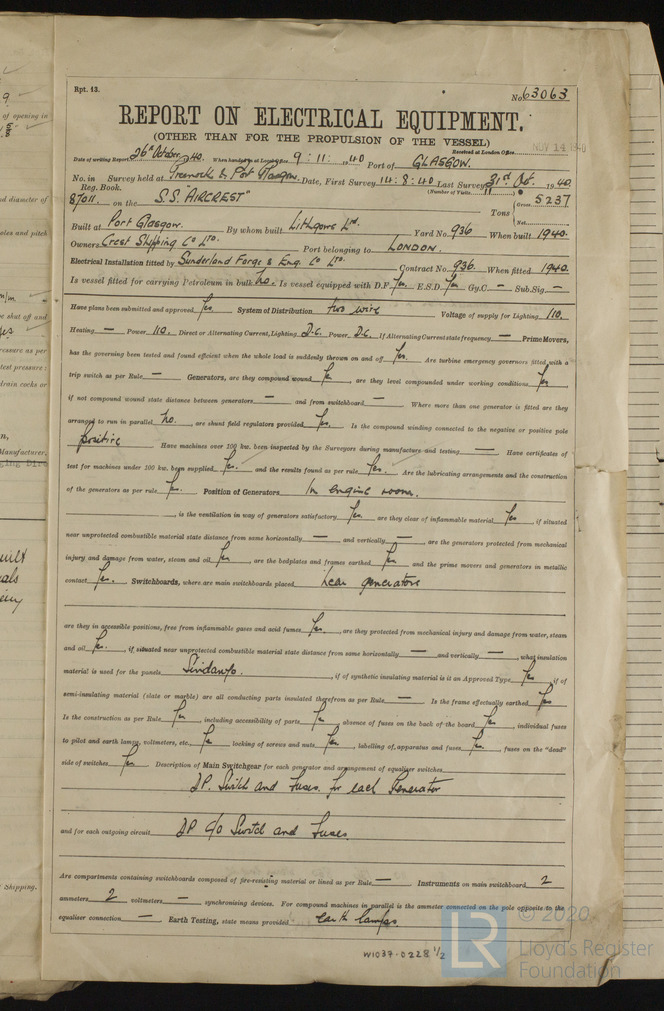 Rpt. 13.
No. 63063
REPORT ON ELECTRICAL EQUIPMENT.
(OTHER THAN FOR THE PROPULSION OF THE VESSEL)
Received at London Office NOV 14 1940
Date of writing Report 26th October 1940. When handed in at Local Office 9:11: 1940 Port of GLASGOW.
No. in Survey held at Greenock & Port Glasgow. Date, First Survey 14:8:40 Last Survey 31st Oct. 1940
Reg. Book. (Number of Visits 11)
87011. on the S.S. "AIRCREST" Tons {Gross 5237
Net
Built at Port Glasgow. By whom built Lithgows Ltd. Yard No. 936 When built 1940.
Owners Crest Shipping Co Ltd. Port belonging to LONDON.
Electrical Installation fitted by Sunderland Forge & Eng. Co Ltd. Contract No. 936. When fitted 1940.
Is vessel fitted for carrying Petroleum in bulk No. Is vessel equipped with D.F. Yes E.S.D. Yes Gy.C — Sub.Sig —
Have plans been submitted and approved Yes. System of Distribution two wire Voltage of supply for Lighting 110.
Heating — Power 110. Direct or Alternating Current, Lighting D.C. Power D.C. If Alternating Current state frequency — Prime Movers,
has the governing been tested and found efficient when the whole load is suddenly thrown on and off Yes. Are turbine emergency governors fitted with a
trip switch as per Rule — Generators, are they compound wound Yes, are they level compounded under working conditions Yes,
if not compound wound state distance between generators — and from switchboard — Where more than one generator is fitted are they
arranged to run in parallel No., are shunt field regulators provided Yes. Is the compound winding connected to the negative or positive pole
positive Have machines over 200 kw. been inspected by the Surveyors during manufacture and testing — Have certificates of
test for machines under 200 kw. been supplied Yes. and the results found as per rule Yes. Are the lubricating arrangements and the construction
of the generators as per rule Yes. Position of Generators In engine room.
, is the ventilation in way of generators satisfactory Yes. are they clear of inflammable material Yes, if situated
near unprotected combustible material state distance from same horizontally — and vertically —, are the generators protected from mechanical
injury and damage from water, steam and oil Yes, are the bedplates and frames earthed Yes and the prime movers and generators in metallic
contact Yes. Switchboards, where are main switchboards placed near generators
are they in accessible positions, free from inflammable gases and acid fumes Yes, are they protected from mechanical injury and damage from water, steam
and oil Yes., if situated near unprotected combustible material state distance from same horizontally — and vertically —, what insulation
material is used for the panels Sindanyo., if of synthetic insulating material is it an Approved Type Yes, if of
semi-insulating material (slate or marble) are all conducting parts insulated therefrom as per Rule — Is the frame effectually earthed Yes
Is the construction as per Rule Yes, including accessibility of parts Yes, absence of fuses on the back of the board Yes, individual fuses
to pilot and earth lamps, voltmeters, etc. Yes locking of screws and nuts Yes, labelling of apparatus and fuses Yes, fuses on the "dead"
side of switches Yes Description of Main Switchgear for each generator and arrangement of equaliser switches
D.P. Switch and Fuses for each Generator
and for each outgoing circuit D.P. C/O Switch and Fuses.
Are compartments containing switchboards composed of fire-resisting material or lined as per Rule — Instruments on main switchboard 2
ammeters 2 voltmeters — synchronising devices. For compound machines in parallel is the ammeter connected on the pole opposite to the
equaliser connection — Earth Testing, state means provided earth lamps
W1037-0228 1/2
LR © 2020
Lloyd's Register
Foundation